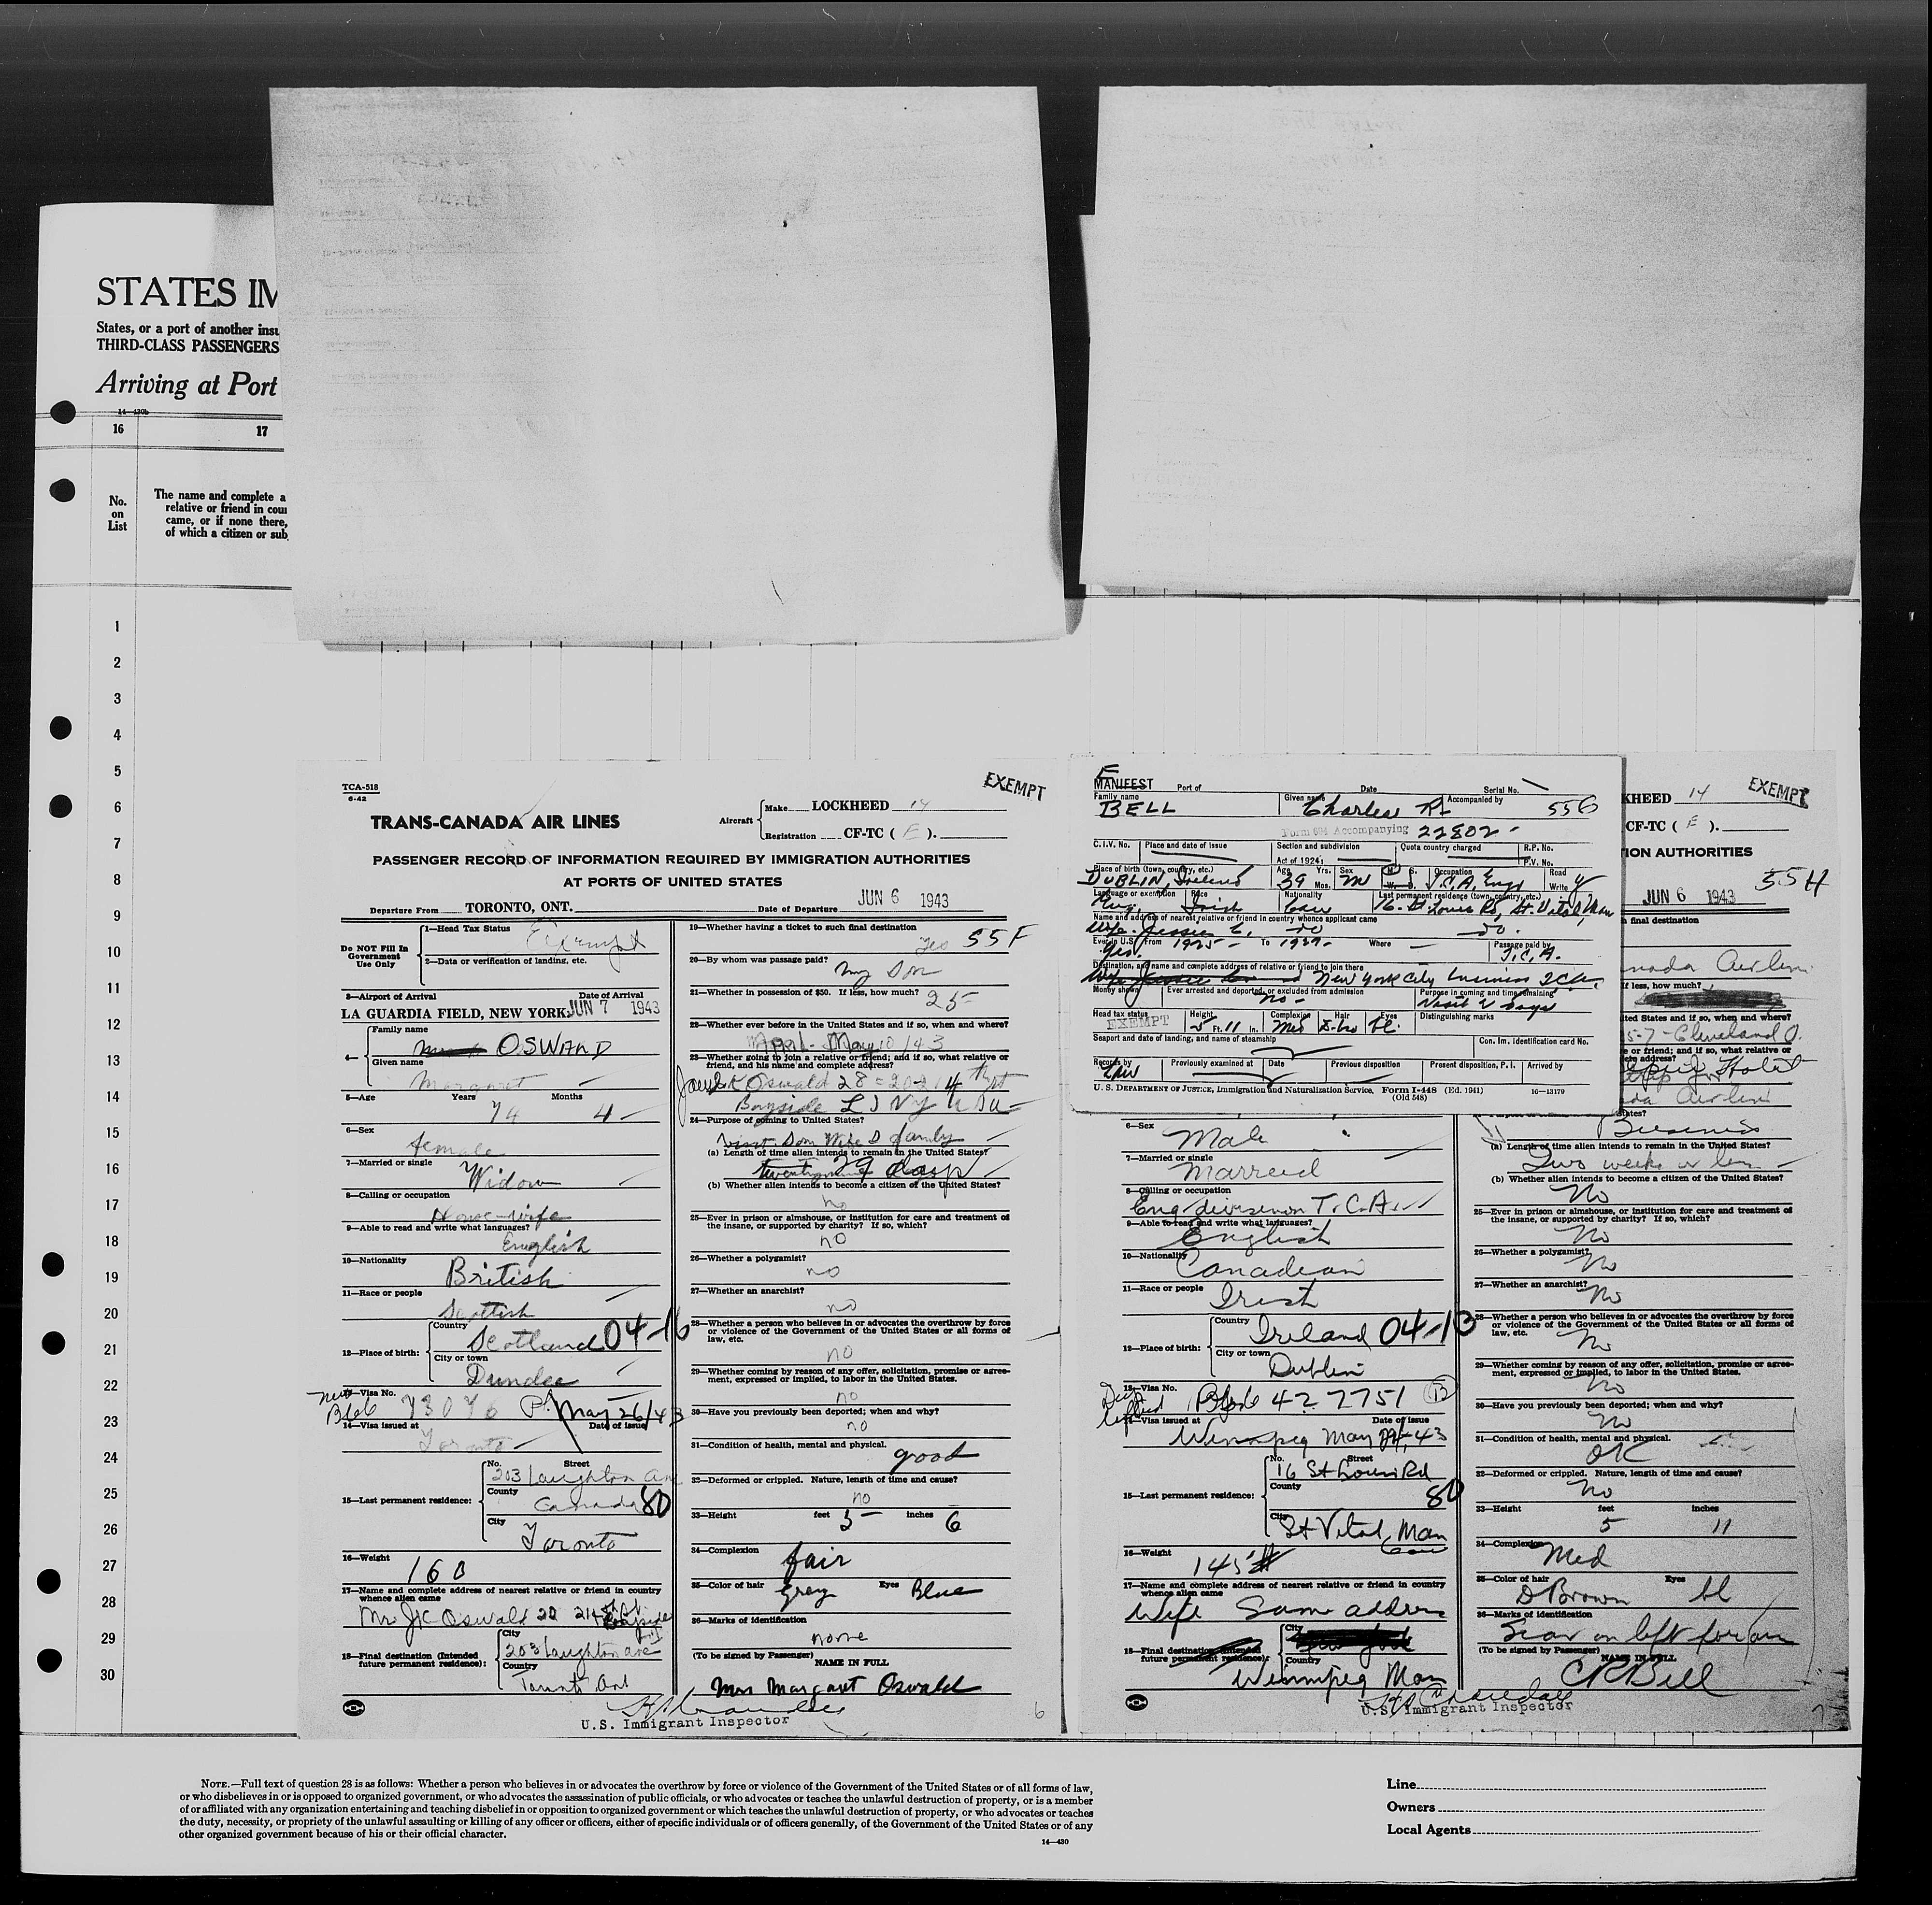 STATES IM
States, or a port of another insu
THIRD-CLASS PASSENGERS
Arriving at Port
14—430b
16 17
No. on List
The name and complete a
relative or friend in coun
came, or if none there,
of which a citizen or sub
1
2
3
4
5
6
7
8
9
10
11
12
13
14
15
16
17
18
19
20
21
22
23
24
25
26
27
28
29
30
TCA-518
6-42
EXEMPT
TRANS-CANADA AIR LINES
Aircraft
Make LOCKHEED 14
Registration CF-TC ( E ).
PASSENGER RECORD OF INFORMATION REQUIRED BY IMMIGRATION AUTHORITIES
AT PORTS OF UNITED STATES
Departure From TORONTO, ONT. Date of Departure JUN 6 1943
Do NOT Fill In Government Use Only
1—Head Tax Status Exempt
2—Data or verification of landing, etc.
3—Airport of Arrival Date of Arrival
LA GUARDIA FIELD, NEW YORK. JUN 7 1943
4— Family name OSWALD
Given name Margaret
5—Age Years 74 Months 4
6—Sex female
7—Married or single Widow
8—Calling or occupation House-wife
9—Able to read and write what languages? English
10—Nationality British
11—Race or people Scottish
12—Place of birth: Country Scotland 04-16
City or town Dundee
13—Visa No. 73076 May 26/43
14—Visa issued at Toronto Date of issue
15—Last permanent residence: No. Street 203 Laughton Ave
County Canada 80
City Toronto
16—Weight 160
17—Name and complete address of nearest relative or friend in country
whence alien came
Mr J K Oswald 214 Bayside
18—Final destination (Intended
future permanent residence):
City 203 Laughton ave
Country Toronto Ont
19—Whether having a ticket to such final destination
Yes 55F
20—By whom was passage paid?
my Son
21—Whether in possession of $50. If less, how much? 25
22—Whether ever before in the United States and if so, when and where?
April. May 10/43
23—Whether going to join a relative or friend; and if so, what relative or
friend, and his name and complete address?
K Oswald 28-20-214 St
Bayside L I NY USA
24—Purpose of coming to United States?
visit Son Wife & family
(a) Length of time alien intends to remain in the United States?
29 days
(b) Whether alien intends to become a citizen of the United States?
no
25—Ever in prison or almshouse, or institution for care and treatment of
the insane, or supported by charity? If so, which?
no
26—Whether a polygamist?
no
27—Whether an anarchist?
no
28—Whether a person who believes in or advocates the overthrow by force
or violence of the Government of the United States or all forms of
law, etc.
no
29—Whether coming by reason of any offer, solicitation, promise or agree-
ment, expressed or implied, to labor in the United States.
no
30—Have you previously been deported; when and why?
no
31—Condition of health, mental and physical. good
32—Deformed or crippled. Nature, length of time and cause?
no
33—Height feet 5 inches 6
34—Complexion fair
35—Color of hair Grey Eyes Blue
36—Marks of identification
none
(To be signed by Passenger)
NAME IN FULL
Mrs Margaret Oswald
U.S. Immigrant Inspector
6
E
MANIFEST Port of Date Serial No.
Family name BELL Given name Charles R. Accompanied by 55G
Form 694 Accompanying 22802
C.I.V. No. Place and date of issue Section and subdivision Act of 1924 Quota country charged R.P. No. P.V. No.
Place of birth (town, country, etc.) DUBLIN, Ireland Age 39 Yrs. Mos. Sex M M. S. W. D. Occupation T.C.A. Engr Read Write y
Language or exemption Eng. Race Irish Nationality Can Last permanent residence (town, country, etc.) 16 St Louis Rd, St. Vital Man
Name and address of nearest relative or friend in country whence applicant came
Wife. Jessie C. do do
Ever in U.S. Yes. From 1925 To 1939 Where Passage paid by T.C.A.
Destination, and name and complete address of relative or friend to join there
New York City business TCA
Money shown Ever arrested and deported, or excluded from admission no Purpose in coming and time remaining visit 2 days
Head tax status EXEMPT Height 5 Ft. 11 In. Complexion Med Hair D-bro Eyes bl. Distinguishing marks
Seaport and date of landing, and name of steamship Con. Im. Identification card No.
Records by Previously examined at Date Previous disposition Present disposition, P. I. Arrived by
U. S. DEPARTMENT OF JUSTICE, Immigration and Naturalization Service, Form I-448 (Ed. 1941)
(Old 548)
16—13179
KHEED 14 EXEMPT
CF-TC ( E ).
ION AUTHORITIES
55H
JUN 6 1943
final destination
nada Airlines
If less, how much?
ited States and if so, when and where?
Cleveland O.
e or friend; and if so, what relative or
ete address?
Hotel
da Airlines
tates?
6—Sex Male
7—Married or single Married
8—Calling or occupation
Eng division T.C.A.
9—Able to read and write what languages?
English
10—Nationality Canadian
11—Race or people Irish
12—Place of birth: Country Ireland 04-10
City or town Dublin
13—Visa No. 42 7751
14—Visa issued at Date of issue
Winnipeg May 43
15—Last permanent residence: No. Street 16 St Louis Rd
County 80
City St Vital, Man
16—Weight 145#
17—Name and complete address of nearest relative or friend in country
whence alien came
Wife Same address
18—Final destination (Intended
future permanent residence):
City
Country
Winnipeg Man
Business
(a) Length of time alien intends to remain in the United States?
Two weeks or less
(b) Whether alien intends to become a citizen of the United States?
No
25—Ever in prison or almshouse, or institution for care and treatment of
the insane, or supported by charity? If so, which?
No
26—Whether a polygamist?
No
27—Whether an anarchist?
No
28—Whether a person who believes in or advocates the overthrow by force
or violence of the Government of the United States or all forms of
law, etc.
No
29—Whether coming by reason of any offer, solicitation, promise or agree-
ment, expressed or implied, to labor in the United States.
No
30—Have you previously been deported; when and why?
No
31—Condition of health, mental and physical.
OK
32—Deformed or crippled. Nature, length of time and cause?
No
33—Height feet 5 inches 11
34—Complexion Med
35—Color of hair D Brown Eyes bl
36—Marks of identification
Scar on left forearm
(To be signed by Passenger)
NAME IN FULL
CRBell
U.S. Immigrant Inspector
7
NOTE.—Full text of question 28 is as follows: Whether a person who believes in or advocates the overthrow by force or violence of the Government of the United States or of all forms of law,
or who disbelieves in or is opposed to organized government, or who advocates the assassination of public officials, or who advocates or teaches the unlawful destruction of property, or is a member
of or affiliated with any organization entertaining and teaching disbelief in or opposition to organized government or which teaches the unlawful destruction of property, or who advocates or teaches
the duty, necessity, or propriety of the unlawful assaulting or killing of any officer or officers, either of specific individuals or of officers generally, of the Government of the United States or of any
other organized government because of his or their official character.
14—430
Line
Owners
Local Agents